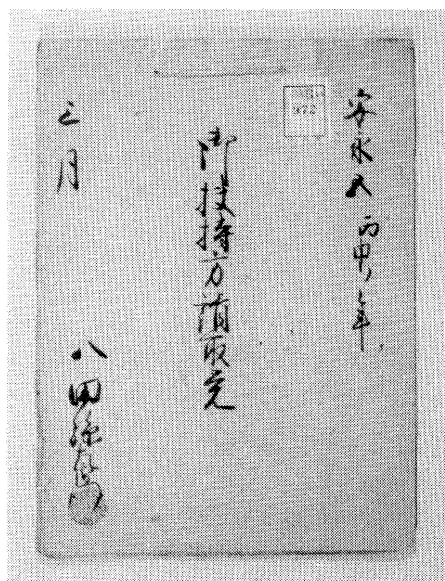 安永五丙申年
御扶持方請取覚
正月
八田